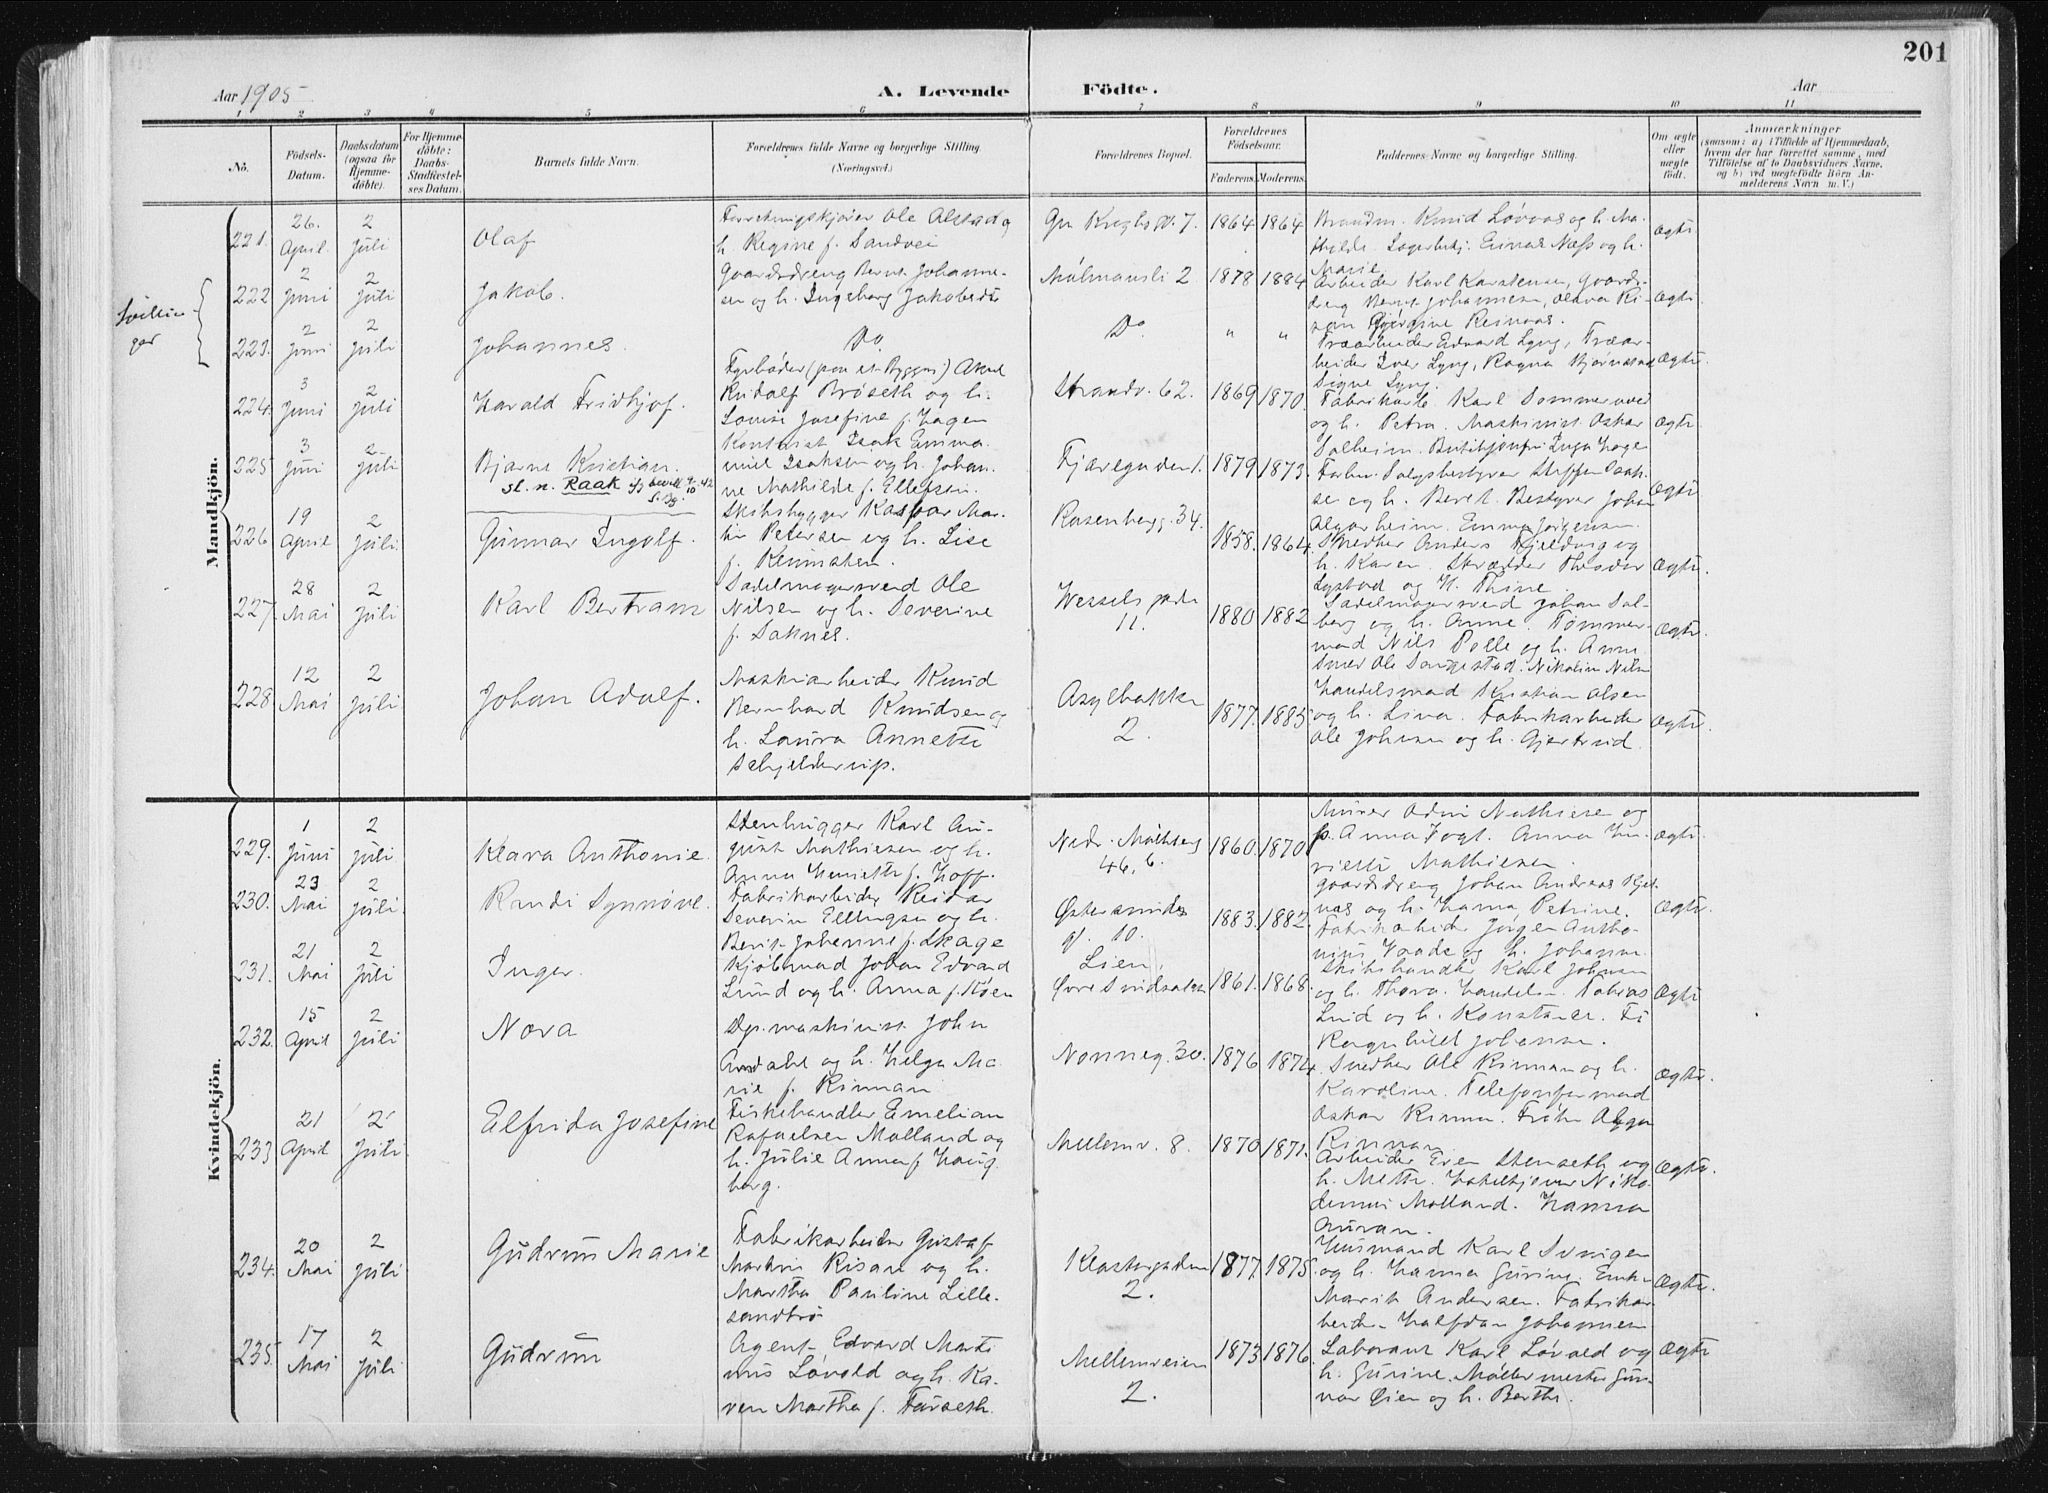 201
Aar 1905
A. Levende Födte.
Aar
1 2 3 4 5 6 7 8 9 10 11
No.
Födsels-Datum.
Daabsdatum (ogsaa for Hjemmedöbte).
For Hjemmedöbte: Daabs-Stadfestelses Datum.
Barnets fulde Navn.
Forældrenes fulde Navne og borgerlige Stilling. (Næringsvei.)
Forældrenes Bopæl.
Forældrenes Födselsaar.
Faderens. Moderens.
Faddernes Navne og borgerlige Stilling.
Om ægte eller uægte födt.
Anmærkninger
(saasom: a) i Tilfælde af Hjemmedaab, hvem der har forrettet samme, med Tilföielse af to Daabsvidners Navne, og b) ved uægtefödte Börn Anmelderens Navn m. V.)
Mandkjön.
221. 26. April 2 Juli Olaf
Forretningskjører Ole Alstad og
h. Regine f. Sandvei
1864 1864
Brandm. Knud Løvaas og h. Ma-
thilde. Lagerbetj. Einar Næss og h.
Marie
Ægte
Tvillin-
ger
222 2 Juni 2 Juli Jakob.
Gaardsdreng Bernt Johanne-
sen og h. Ingeborg Jakobsdtr
Mølmansli 2 1878 1884
Arbeider Karl Karstensen, Gaards-
dreng Bernt Johannesen, Olava Ri-
Reinaas.
Ægte
223. 2 Juni 2 Juli Johannes. Do Do " "
Træarbeider Edvard Lyng, Træar-
beider Iver Lyng, Ragna Bjørnaas
Signe Lyng.
Ægte
224. 3 Juni 2 Juli Harald Fridtjof.
Fyrbøder (paa et Byggeri) Axel
Rudolf Brøseth og h.
Louise Josefine f. Hagen
Strandv. 62. 1869 1870.
Fabrikarb. Karl Sommervold
og h. Petra. Maskinist Oskar
Solheim. Butikjomfru Inga Hage
Ægte
225 3 Juni 2 Juli Bjarne Kristian.
sl. n. Raak
Kontorist Isak Emma-
nuel Isaksen og h. Johan-
ne Mathilde f. Ellefsen.
Fjæregaden 1. 1879 1873.
Forhv. Salgsbestyrer Steffen Isak-
sen og h. Beret. Bestyrer Johan
Algarheim. Emma Jørgensen.
Ægte
226 19 April 2 Juli. Gunnar Ingolf.
Skibsbygger Kaspar Mar-
tin Petersen og h. Lise
f.
Rosenborgg. 34. 1858. 1864.
Smedker Anders Fjeldvig og
h. Karen. Skrædder Theodor
Lystad og H. Thine
Ægte.
227. 28 Mai 2 Juli Karl Bertram
Sadelmagersvend Ole
Nilsen og h. Severine
f. Saknes.
Wesselsgade
11.
1880 1882
Sadelmagersvend Johan Sol-
berg og h. Anne. Tømmer-
mand Nils Polle og h. Anne
Ole Saugestad. Nikolin Nilsen
Ægte.
228 12 Mai 2 Juli Johan Adolf.
Maskinarbeider Knud
Bernhard Knudsen og
h. Laura Annette
Schjelderup.
Asylbakken
2.
1877. 1885
Handelsmand Kristian Olsen
og h. Lina. Fabrikarbeider
Ole Johnsen og h. Gjertrud.
Ægte.
Kvindekjön.
229. 1 Juni 2 Juli Klara Anthonie.
Stenhugger Karl Au-
gust Mathiesen og h.
Anna Henriette f. Hoff.
Nedr. Møllenberg
46, 6.
1860 1870
Murer Odin Mathiesen og
h. Anna Vogt. Anna Hen-
riette Mathiesen.
Ægte
230. 23 Mai 2 Juli. Randi Synnøve.
Fabrikarbeider Reidar
Severin Ellingsen og h.
Berit Johanne f. Skage
gt. 10.
1883. 1882.
Gaardsdreng Johan Andreas
og h. Hanna Petrine.
Fabrikarbeider Jørgen Antho-
nius Vaade og h. Johanna
Ægte.
231. 21 Mai 2 Juli Inger.
Kjøbmand Johan Edvard
Lund og h. Anna f. Røen
Lien,
1861. 1868
Skibshandler Karl Johnsen
og h. Thora. Handelsm. Tobias
Lund og h. Konstance.
Ragnhild Johansen.
Ægte
232. 15 April 2 Juli Nora
Dpsmaskinist John
Andahl og h. Helga Ma-
rie f. Rinnan
Nonneg. 30. 1876 1874.
Snedker Ole Rinnan og h.
Karoline. Telefonformand
Oskar Rinnan. Frøken Olga
Rinnan
Ægte.
233 21 April 2 Juli. Elfrida Josefine
Fiskehandler Emelian
Rafaelsen Molland og
h. Julie Anna f. Haug-
berg.
Mellemv. 8. 1870 1871.
Arbeider Even Stenseth og
h. Mette. Hotelkjører Niko-
demus Molland. Hanna
Auran.
Ægte.
234. 20 Mai 2 Juli Gudrun Marie
Fabrikarbeider Gustaf
Martin Risan og h.
Martha Pauline Lille-
sandbrø
Klostergaden
2.
1877. 1875.
Husmand Karl Svingen
og h. Hanna Gurine. Enke
Marit Andersen. Fabrikar-
beider Halfdan Johannesen
Ægte.
235. 17 Mai 2 Juli Gudrun
Agent Edvard Marti-
nus Løvold og h. Ka-
ren Martha f. Farseth.
Mellemveien
2.
1873 1876
Laborant Karl Løvold og
h. Gurine. Møllermester Gun-
nar Øien og h. Berthe.
Ægte